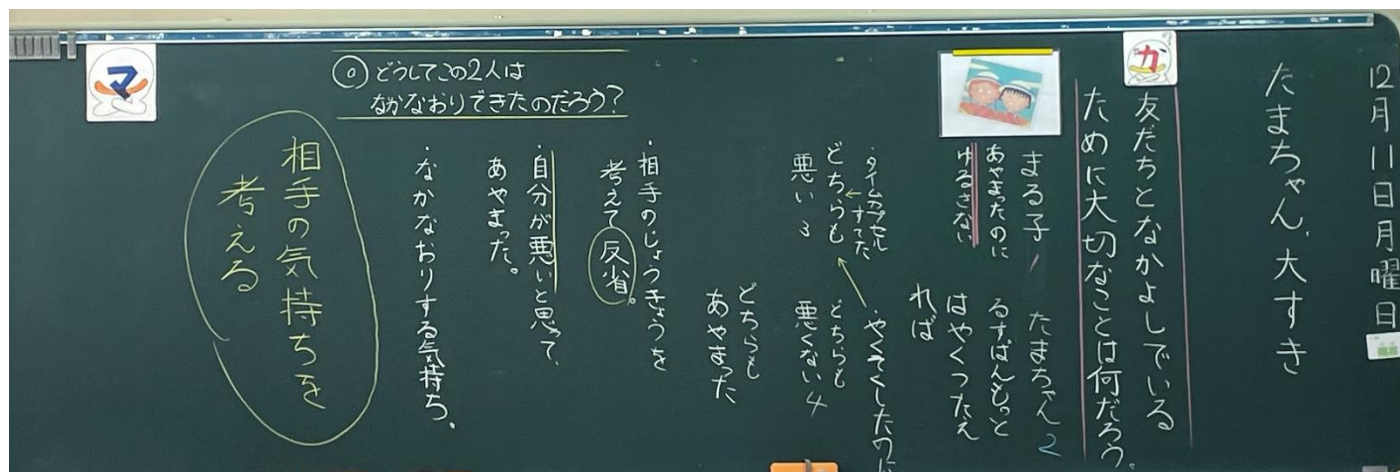 12月11日月曜日
たまちゃん、大すき
カ
友だちとなかよしでいる
ために大切なことは何だろう。
まる子 1
あやまったのに
ゆるさない
たまちゃん 2
るすばんもっと
はやくつたえ
れば
・タイムカプセル
すてた
どちらも
悪い 3
・やくそくしたのに
どちらも
悪くない 4
どちらも
あやまった
◎どうしてこの2人は
なかなおりできたのだろう？
・相手のじょうきょうを
考えて反省。
・自分が悪いと思って、
あやまった。
・なかなおりする気持ち。
マ
相手の気持ちを
考える